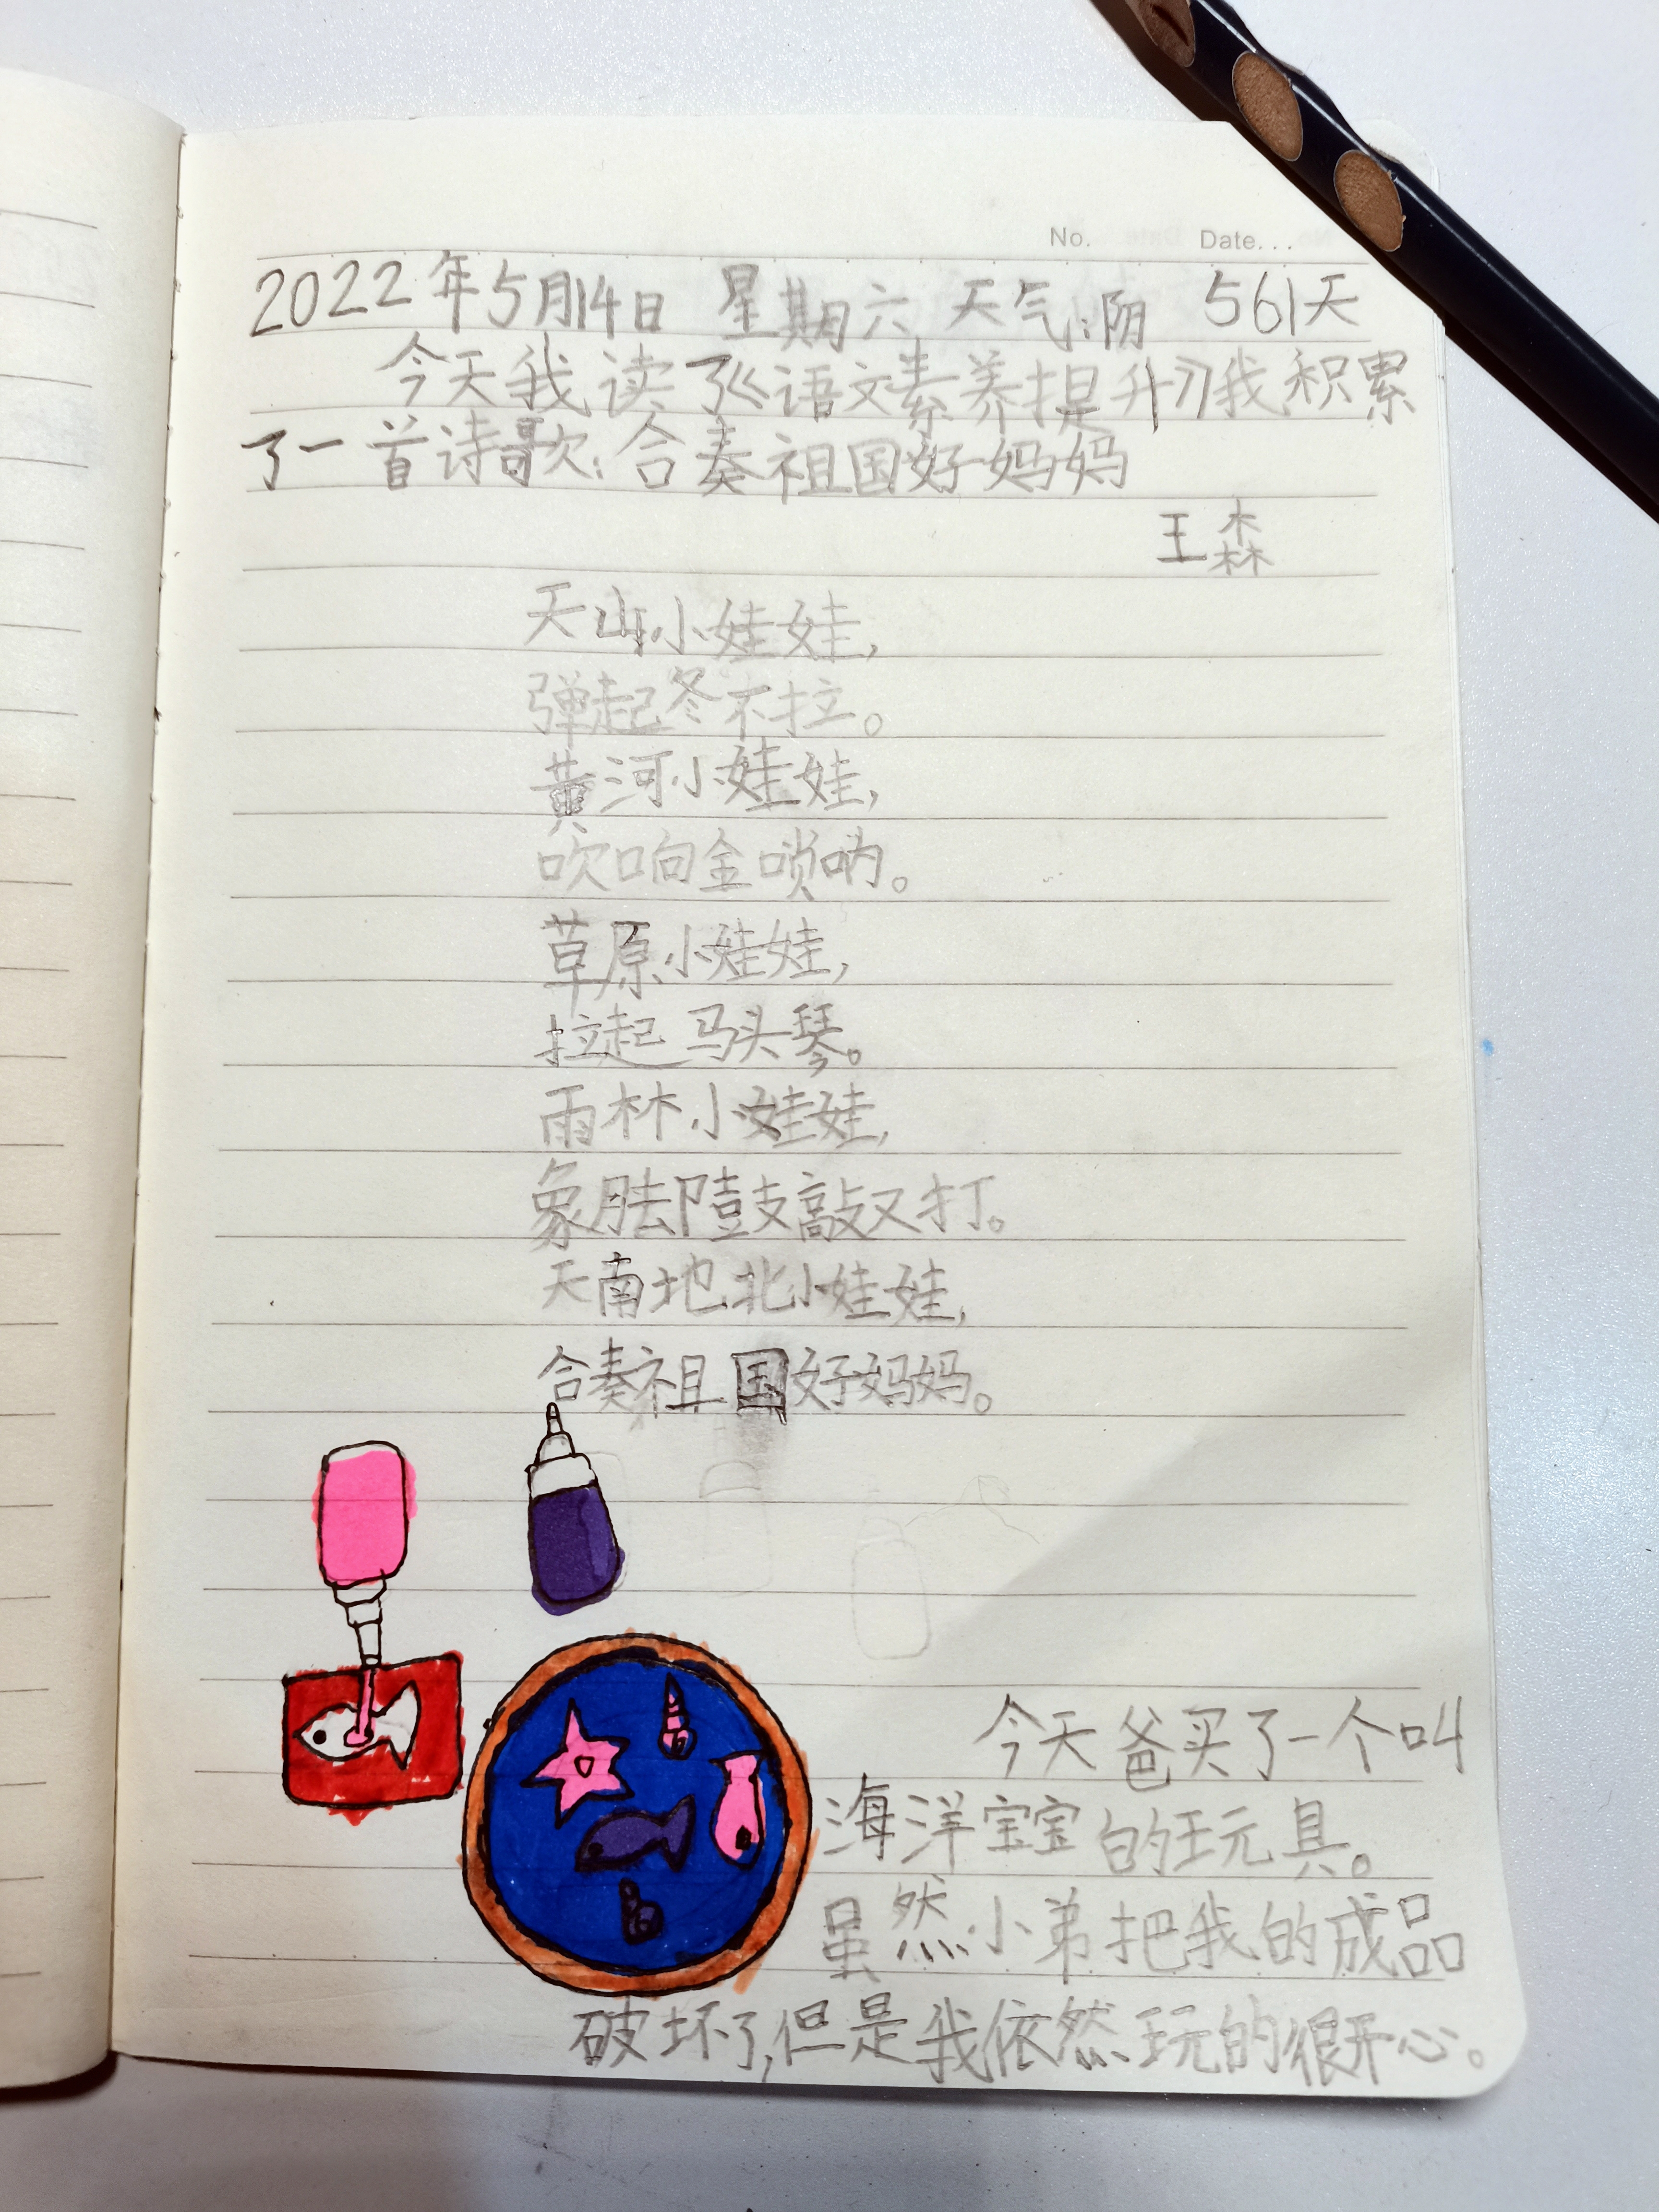 No. Date...
2022年5月14日 星期六 天气:阴 561天
今天我读了《语文素养提升》我积累
了一首诗歌:合奏祖国好妈妈
王森
天山小娃娃,
弹起冬不拉。
黄河小娃娃,
吹响金唢呐。
草原小娃娃,
拉起马头琴。
雨林小娃娃,
象脚鼓敲又打。
天南地北小娃娃,
合奏祖国好妈妈。
今天爸买了一个叫
海洋宝宝的玩具。
虽然小弟把我的成品
破坏了,但是我依然玩的很开心。